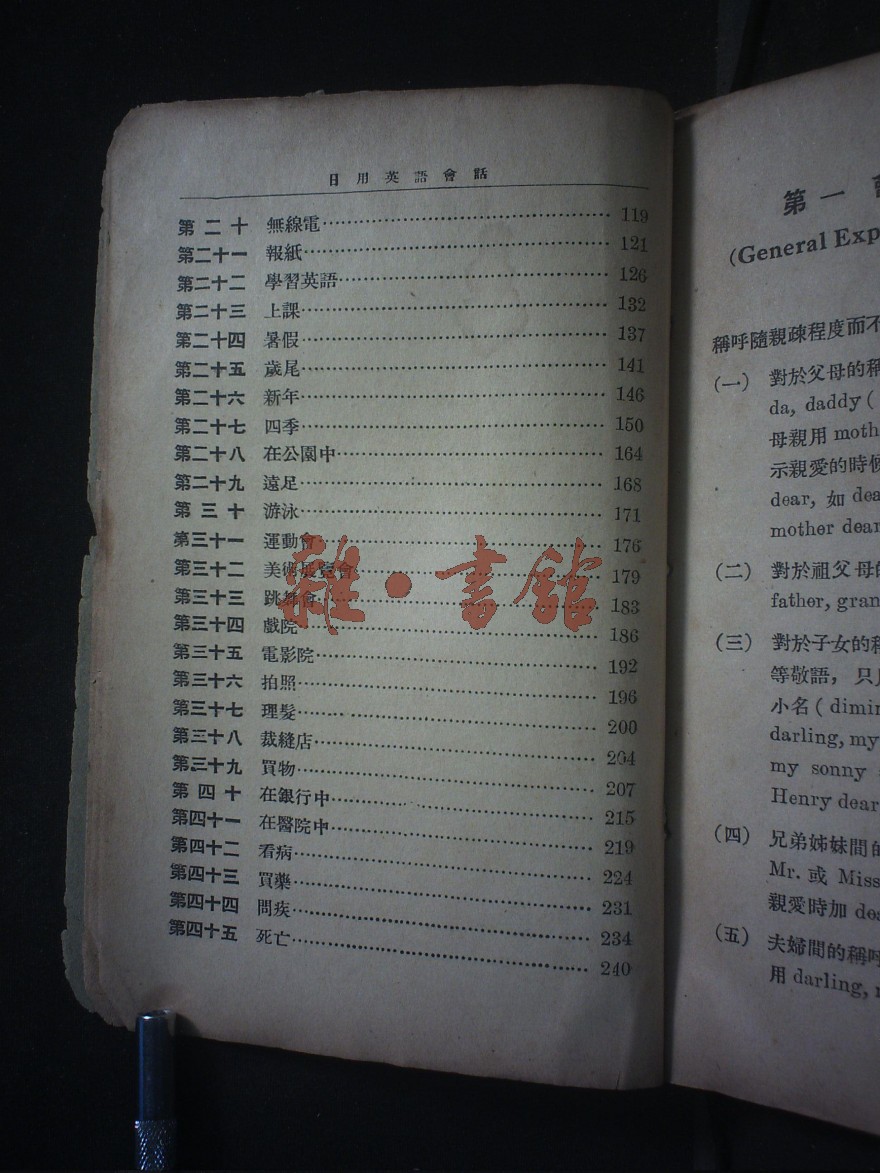 日用英語會話
第二十 無線電 119
第二十一 報紙 121
第二十二 學習英語 126
第二十三 上課 132
第二十四 暑假 137
第二十五 歲尾 141
第二十六 新年 146
第二十七 四季 150
第二十八 在公園中 164
第二十九 遠足 168
第三十 游泳 171
第三十一 運動會 176
第三十二 美術展覽會 179
第三十三 跳舞會 183
第三十四 戲院 186
第三十五 電影院 192
第三十六 拍照 196
第三十七 理髮 200
第三十八 裁縫店 204
第三十九 買物 207
第四十 在銀行中 215
第四十一 在醫院中 219
第四十二 看病 224
第四十三 買藥 231
第四十四 問疾 234
第四十五 死亡 240
雜·書館
第一
(General Exp
稱呼隨親疎程度而不
(一) 對於父母的稱
da, daddy (
母親用 moth
示親愛的時候
dear, 如 dea
mother dear
(二) 對於祖父母的
father, gran
(三) 對於子女的稱
等敬語, 只
小名 ( dimin
darling, my
my sonny
Henry dear
(四) 兄弟姊妹間的
Mr. 或 Miss
親愛時加 dea
(五) 夫婦間的稱呼
用 darling,